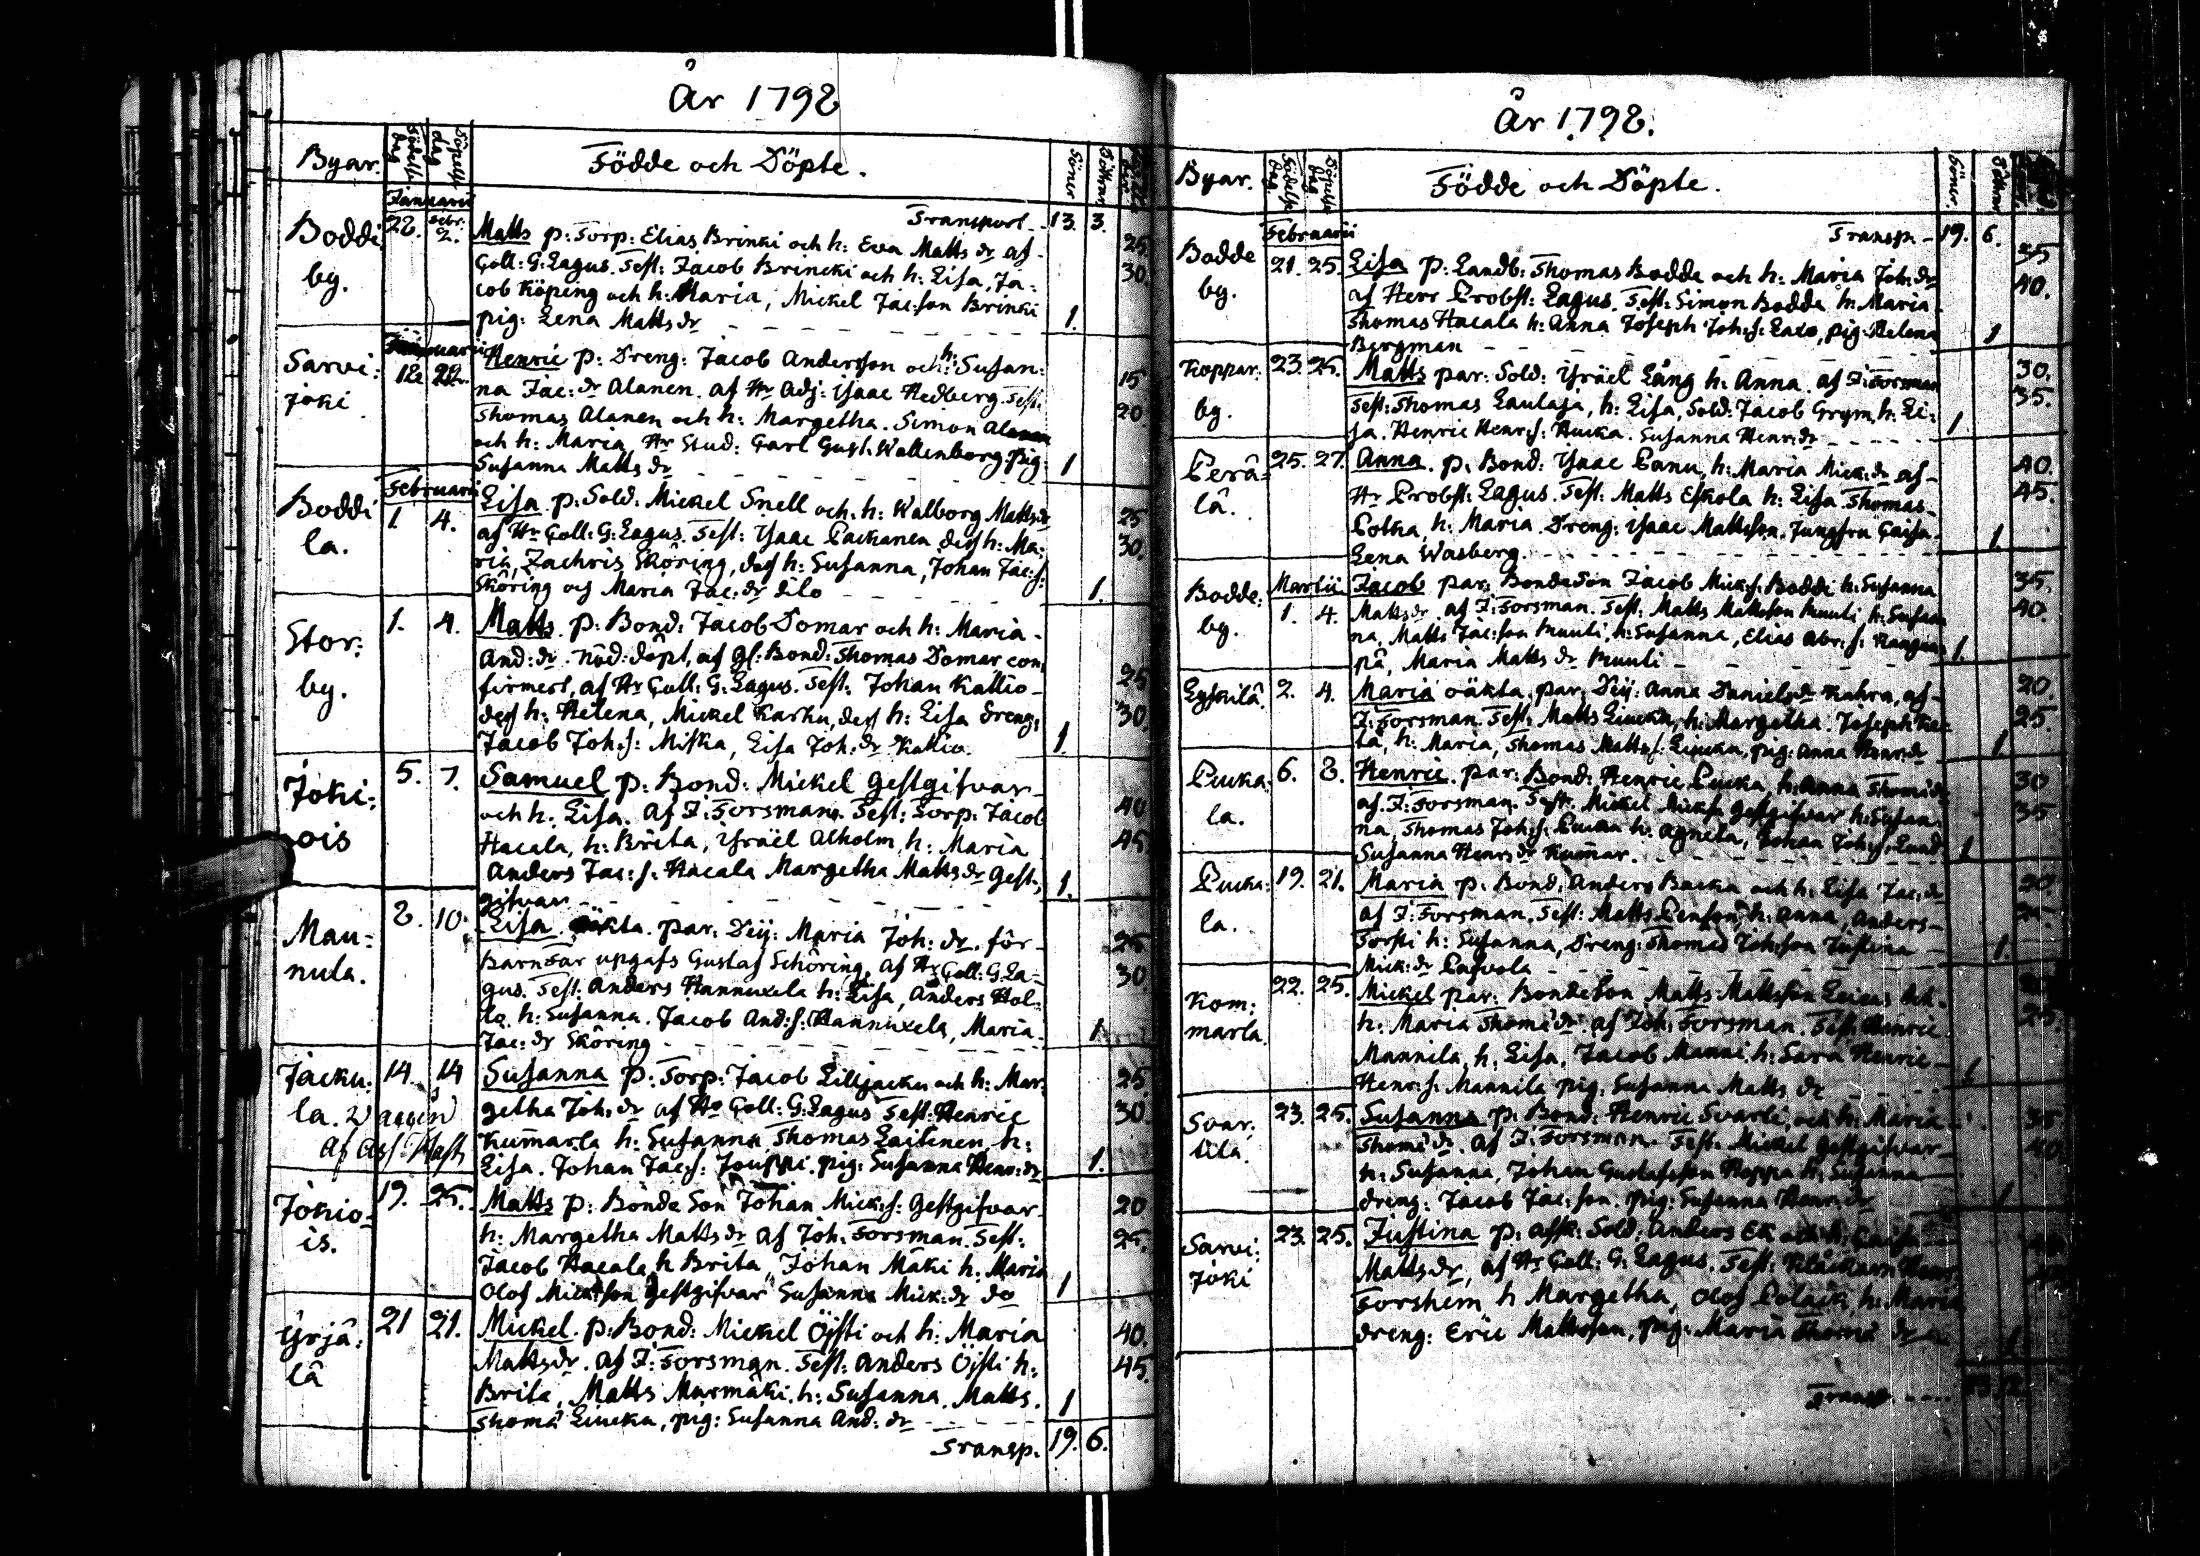 År 1798
Byar. Födelse dag Döpelse dag Födde och Döpte. Söner Döttrar
Januarii Transport 13. 3.
Boddi by. 28. Febr. 2. Matts p: Torp: Elias Brinki och h: Eva Matts dr af 25
Coll: G: Lagus. Test: Jacob Brincki och h: Lisa, Ja= 30.
cob Köping och h: Maria, Mickel Jac:son Brinki
pig: Lena Matts dr 1.
Sarvi: joki Januarii 18 22. Henric p: Dreng: Jacob Andersson och h: Susan:
na Jac: dr Alanen. af Hr Adj: Ysaac Hedberg. Test: 15
Thomas Alanen och h: Margetha. Simon Alanen 20.
och h: Maria, Hr Stud: Carl Gust: Wallenborg pig:
Susanna Matts dr 1
Februarii
Boddi la. 1. 4. Lisa p: Sold: Mickel Snell och h: Walborg Matts dr 25
af Hr Coll: G: Lagus. Test: Ysaac Packanen dess h: Ma: 30.
ria, Zachris Sköring, dess h: Susanna, Johan Jac: s:
Sköring och Maria Jac: dr dito 1.
Stor: by. 1. 4. Matts p: Bond: Jacob Domar och h: Maria
And: dr. nöd: döpt, af gl: Bond: Thomas Domar con
firmert, af Hr Coll: G: Lagus. Test: Johan Kallio 25
dess h: Helena, Mickel Karhu, dess h: Lisa dreng: 30.
Jacob Joh: s: Miska, Lisa Joh: dr Kallio. 1.
Joki: ois 5. 7. Samuel p: Bond: Mickel Gestgifvar
och h: Lisa. af J: Forsman. Test: Torp: Jacob 40
Hacala, h: Brita, Ysräel Alholm, h: Maria 45.
Anders Jac: s: Hacala Margetha Matts dr Gest:
gifvar 1.
Man: nula. 8. 10. Lisa oäkta. par: Dej: Maria Joh: dr. för 25
Barnfar upgafs Gustaf Schöring, af Hr Coll: G: La= 30.
gus. Test: Anders Hannuxela h: Lisa, Anders Hol:
lo, h: Susanna. Jacob And: s: Hannuxela, Maria
Jac: dr Sköring 1
Jacku: la. 14. 14 Susanna p: Torp: Jacob Lilljacku och h: Mar: 25
getha Joh: dr af Hr Coll: G: Lagus Test: Henric 30.
Kummarla h: Susanna Thomas Laitinen h:
Lisa. Johan Jac: s: Jouppi. pig: Susanna Henr: dr 1.
Jokio= is. 19. 25. Matts p: Bonde Son Johan Mick: s: Gestgifvar 20
h: Margetha Matts dr af Joh: Forsman. Test: 25.
Jacob Hacala h Brita, Johan Mäki h: Maria
Olof Mick:son Gestgifvar Susanna Mick: dr do 1
Yrjä: lä 21 21. Mickel. p: Bond: Mickel Öjsti och h: Maria 40.
Matts dr. af J: Forsman. Test: Anders Öjsti h: 45.
Brita, Matts Murmäki. h: Susanna. Matts.
Thomä Liucka, pig: Susanna And: dr 1
Transp. 19. 6.
År 1798.
Byar. Födelse dag Döpelse dag Födde och Döpte. Söner Döttrar
Februarii Transp. 19. 6.
Bodde by. 21. 25. Lisa p: Landb: Thomas Bodde och h: Maria Joh: dr 35
af Herr Probst: Lagus. Test: Simon Bodde h: Maria 40.
Thomas Hacala h: Anna Joseph Joh: s: pig: Helena
Bergman 1
Koppar: by. 23. 25. Matts par: Sold: Ysräel Lång h: Anna. af J: Forsman 30.
Test: Thomas Laulaja, h: Lisa, Sold: Jacob Grym, h: Li: 35.
sa. Henric Henr: s: Hucka. Susanna Henr: dr 1
Perä= lä. 25. 27. Anna. p: Bond: Ysaac Panu, h: Maria Mick: dr af 40.
Hr Probst: Lagus. Test: Matts Eskola h: Lisa Thomas 45.
Potka, h: Maria Dreng: Ysaac Mattsson. Jungfru Caisa
Lena Wasberg. 1.
Bodde: by. Martii 1. 4. Jacob par: Bonde Son Jacob Mick: s: Boddi h: Susanna 35.
Matts dr af J: Forsman. Test: Matts Mattsson Muuli h: Susan 40.
na, Matts Jac: son Muuli, h: Susanna, Elias Abr: s: Kangan
pä, Maria Matts dr Muuli 1.
2. 4. Maria oäkta. par: Dej: Anna Daniels dr Kahra, af 20.
J: Forsman. Test: Matts Liucka, h: Margetha. Joseph 25.
lä, h: Maria, Thomas Matts s: Liucka, pig: Anna Henr: dr 1
Pucka la. 6. 8. Henric. par: Bond: Henric Pucka, h: Anna Thomä dr 30
af. J: Forsman. Test: Mickel Mick: s: Gestgifvar h: Susan 35
na, Thomas Joh: s: Pucka h: Agneta, Johan Joh: s: Lund
Susanna Henr: dr Kummar. 1
Pucka: la. 19. 21. Maria p: Bond: Anders Backa och h: Lisa Jac: dr 20.
af J: Forsman, Test: Matts h: Anna, Anders 25.
Torsti h: Susanna, Dreng: Thomas Joh:son Justina
Mick: dr Pajvola 1.
Kom: marla. 22. 25. Mickel par: Bonde Son Matts Mattsson och
h: Maria Thomä dr af Joh: Forsman. Test: Henric 25.
Mannila, h: Lisa, Jacob Manni h: Sara Henric
Henr: s: Mannila pig: Susanna Matts dr 1.
Svar: tila. 23. 25. Susanna p: Bond: Henric Svarti, och h: Maria 35
Thomä dr. af J: Forsman. Test: Mickel Gestgifvar 40.
h: Susanna, Johan Gustafsson h: Susanna
dreng: Jacob Jac: son. pig: Susanna Henr: dr 1
Sarvi: joki 23. 25. Justina p: afsk: Sold: Anders Ek och h: Caisa
Matts dr, af Hr Coll: G: Lagus. Test:
Forshem h Margetha, Olof Polack h: Maria
dreng: Eric Mattsson, pig: Maria Thomä dr 1
Transp.